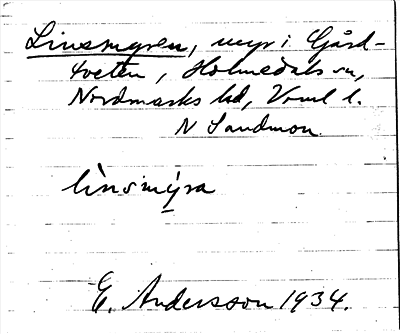 Linsmyren, myr i Gård-
tveten, Holmedals sn,
Nordmarks hd, Vrml l.
N Sandmon.
linsmýra
E. Andersson 1934.